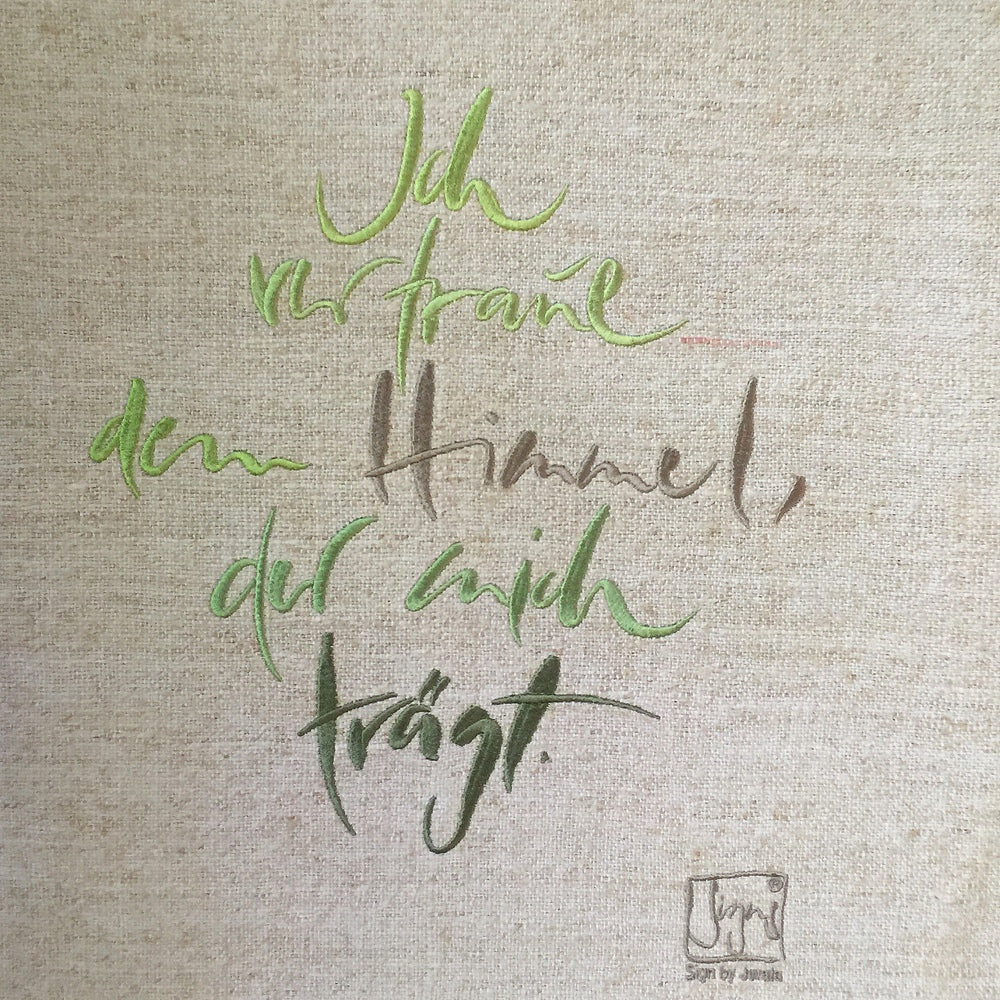 Ich
vertraue
dem Himmel,
der mich
trägt.
Signs ®
Sign by